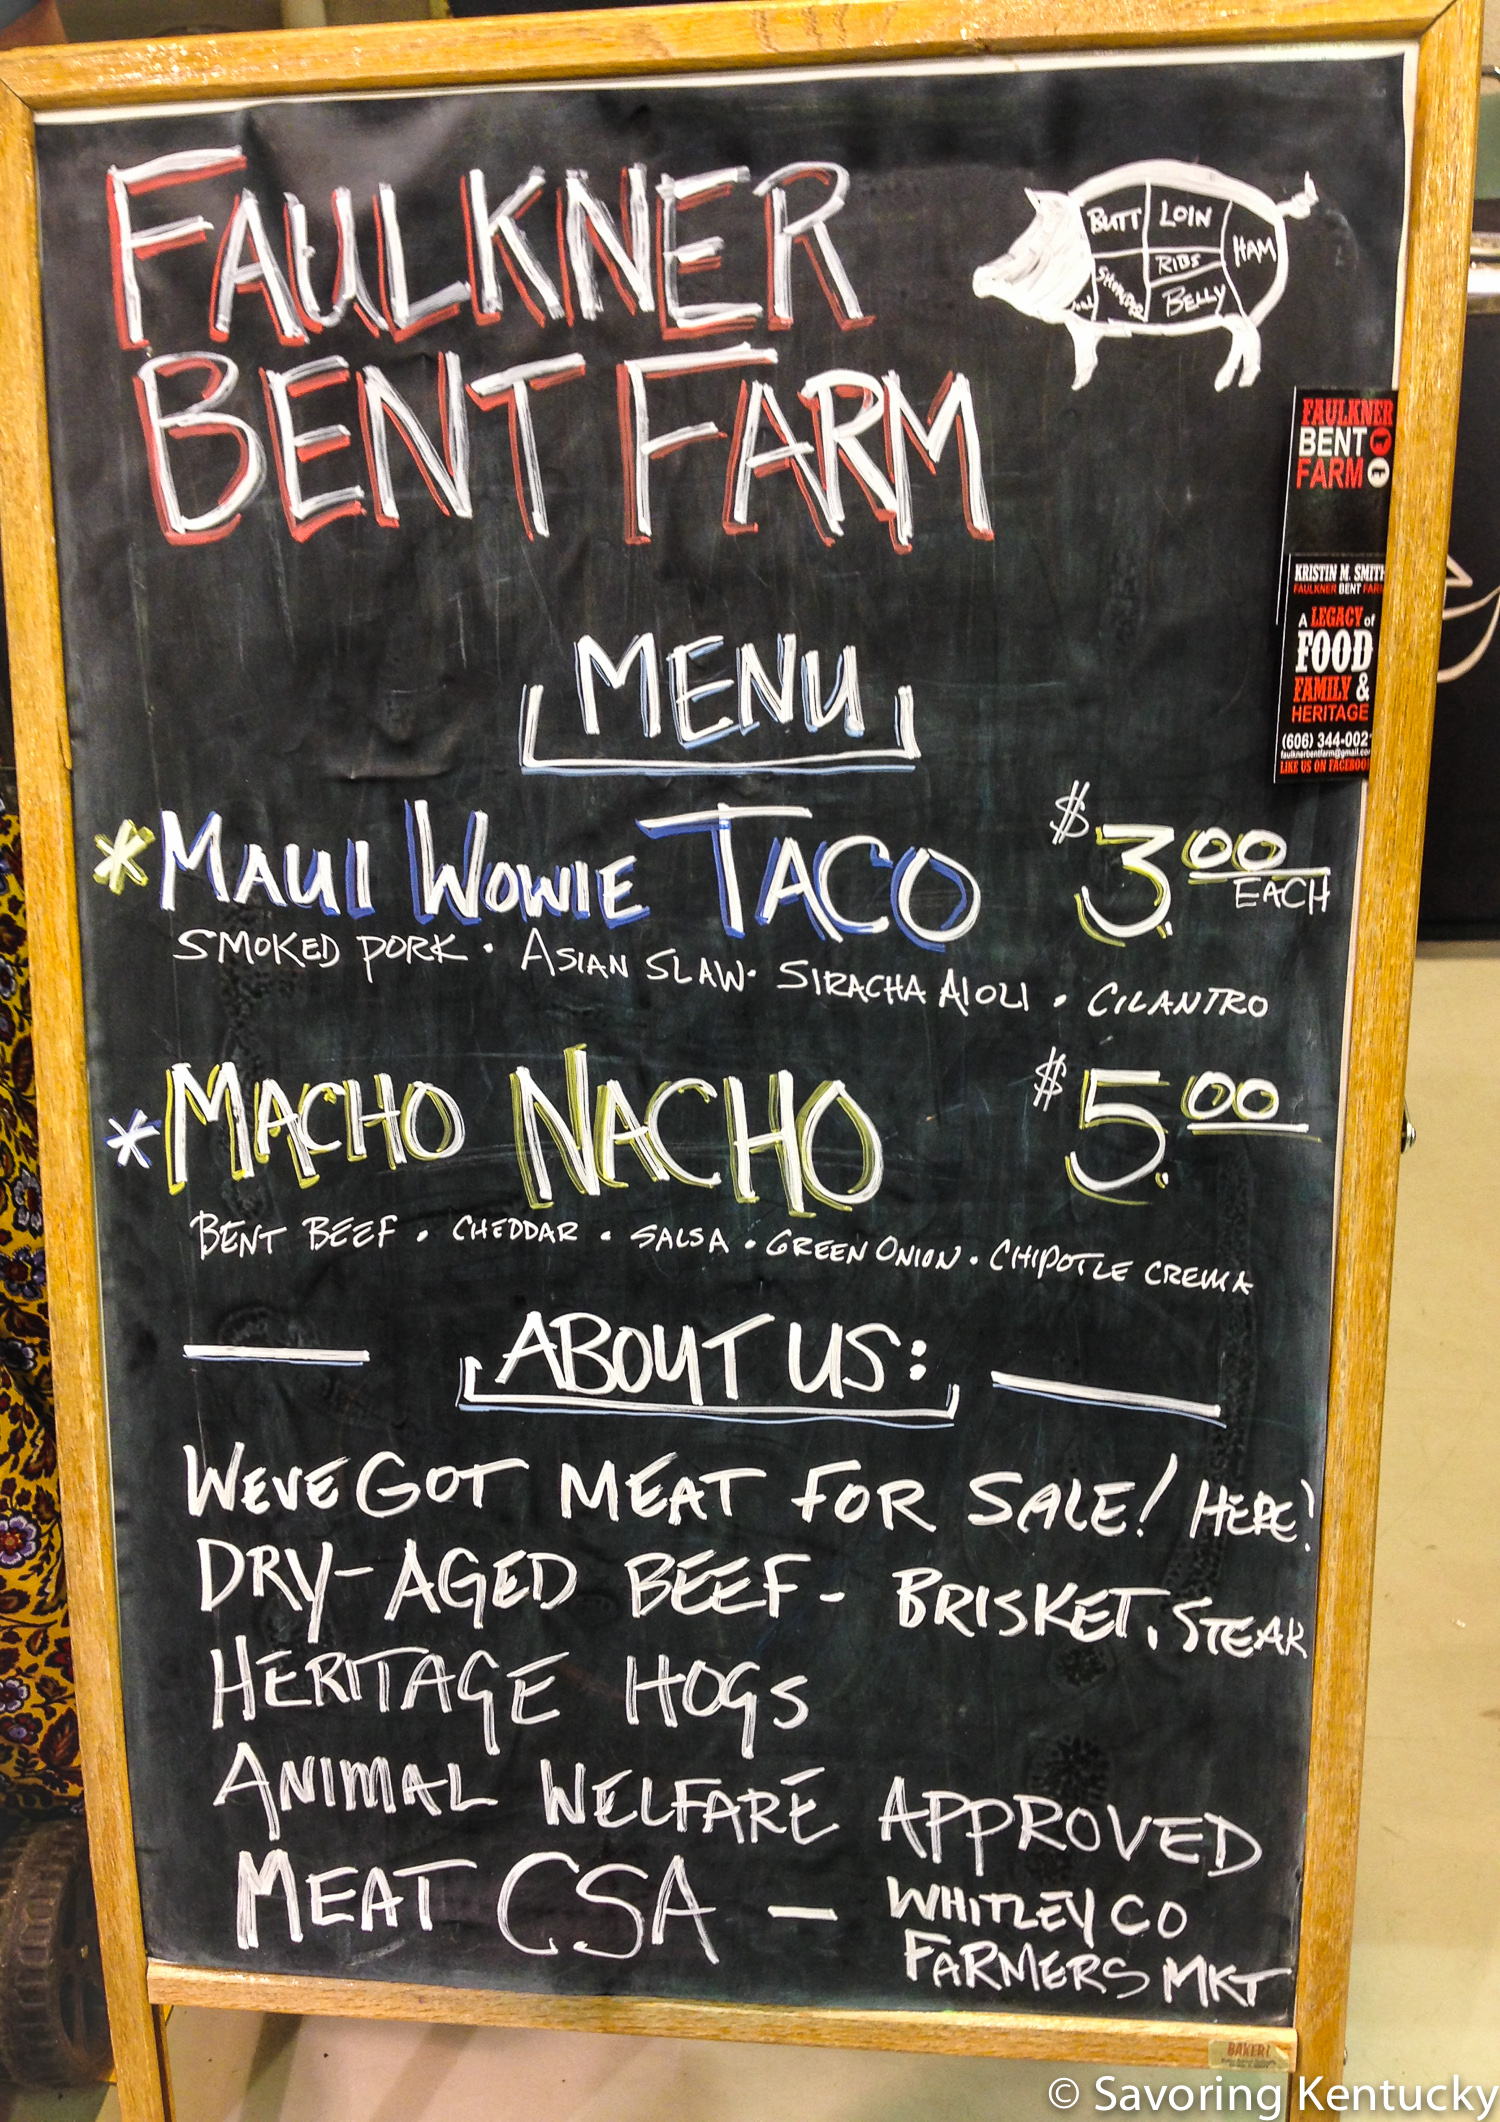 FAULKNER
BENT FARM
BUTT LOIN HAM
RIBS
SHOULDER BELLY
FAULKNER
BENT
FARM
KRISTIN M. SMITH
FAULKNER BENT FARM
A LEGACY of
FOOD
FAMILY &
HERITAGE
(606) 344-002
faulknerbentfarm@gmail.com
LIKE US ON FACEBOOK
MENU
*MAUI WOWIE TACO $3.00 EACH
SMOKED PORK · ASIAN SLAW · SIRACHA AIOLI · CILANTRO
*MACHO NACHO $5.00
BENT BEEF · CHEDDAR · SALSA · GREEN ONION · CHIPOTLE CREMA
ABOUT US:
WEVE GOT MEAT FOR SALE! HERE!
DRY-AGED BEEF - BRISKET, STEAK
HERITAGE HOGS
ANIMAL WELFARE APPROVED
MEAT CSA — WHITLEY CO
FARMERS MKT
BAKER!
© Savoring Kentucky